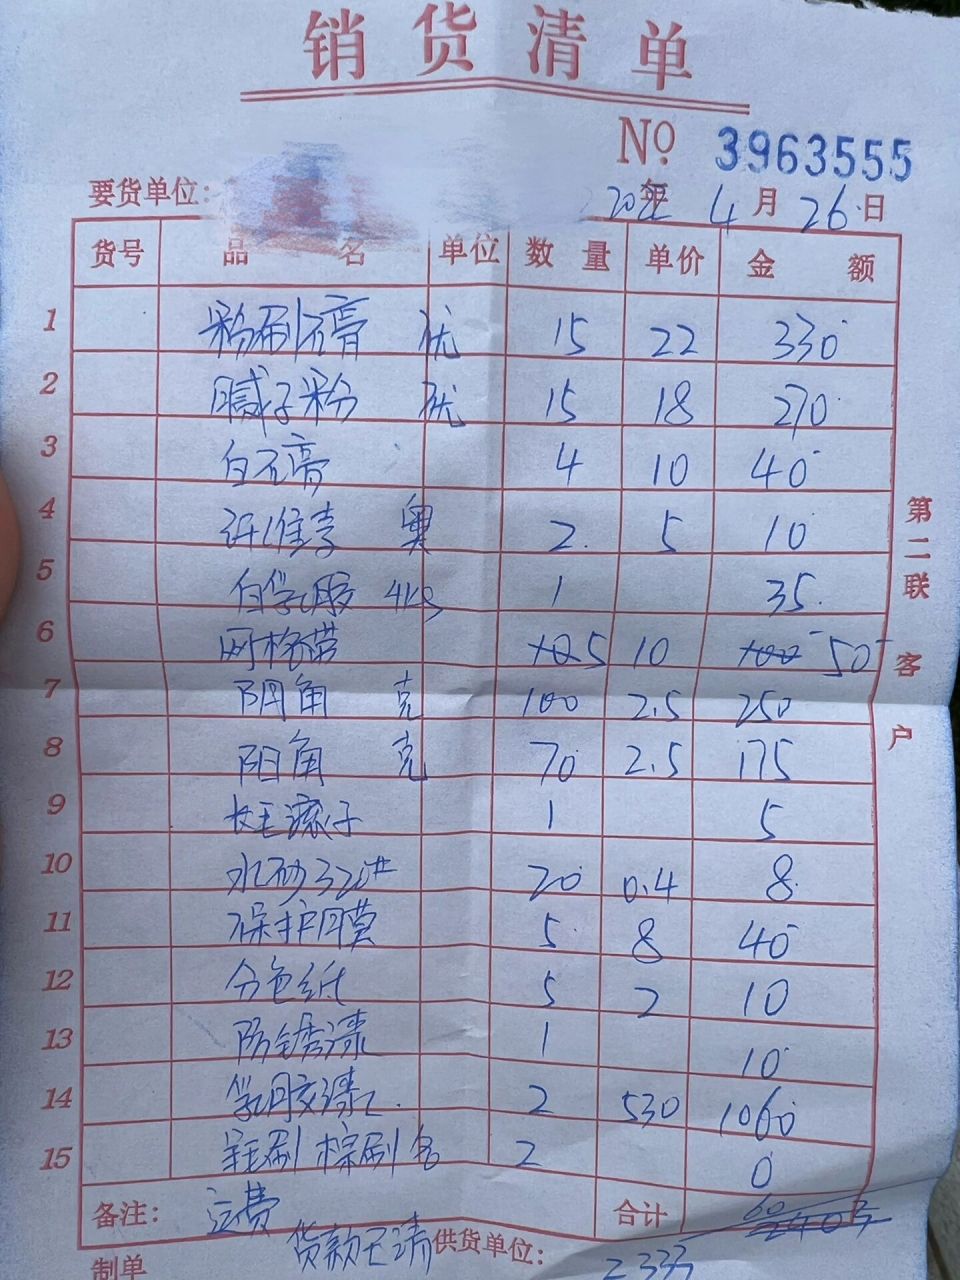 销货清单
No. 3963555
要货单位: 年 4月26日
货号 品名 单位 数量 单价 金额
1 粉刷石膏 优 15 22 330
2 腻子粉 优 15 18 270
3 白石膏 4 10 40
4 纤维素 奥 2 5 10
5 白乳胶 4kg 1 35
6 网格带 10 5 10 100 50
7 阴角 克 100 2.5 250
8 阳角 克 70 2.5 175
9 长毛滚子 1 5
10 水砂320# 20 0.4 8
11 保护膜 5 8 40
12 分色纸 5 2 10
13 防锈漆 1 10
14 乳胶漆 2 530 1060
15 羊毛刷 棕刷各 2 0
备注: 运费 合计 60
制单 货款已清 供货单位: 2333
第二联 客户